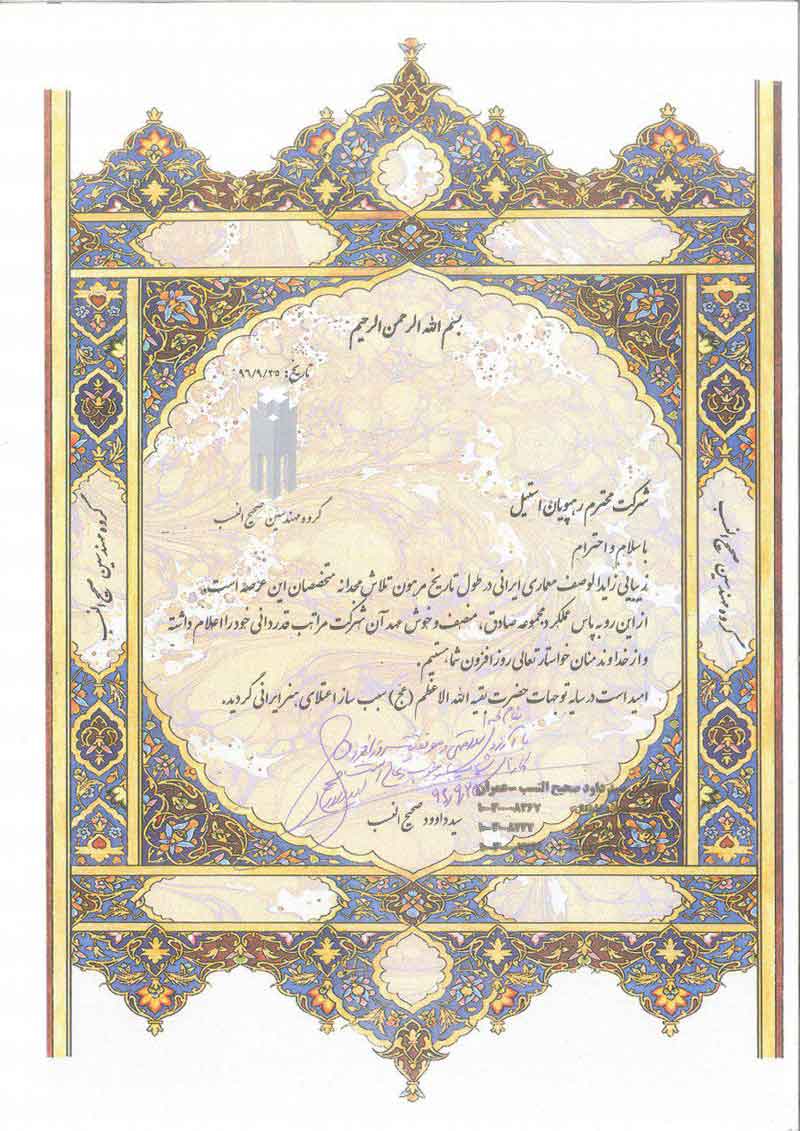 بسم الله الرحمن الرحیم
تاریخ: ۹۶/۹/۲۵
گروه مهندسین صحیح النسب
شرکت محترم رهپویان استیل
با سلام و احترام
زیبایی زایدالوصف معماری ایرانی در طول تاریخ مرهون تلاش مجدانه متخصصان این عرصه است.
از این رو به پاس عملکرد مجموعه صادق، منصف و خوش عهد آن شرکت مراتب قدردانی خود را اعلام داشته
و از خداوند منان خواستار تعالی روز افزون شما هستیم.
امید است در سایه توجهات حضرت بقیه الله الاعظم (عج) سبب ساز اعتلای هنر ایرانی گردید.
سید داوود صحیح النسب
سید داود صحیح النسب - عمران
گروه مهندسین صحیح النسب
گروه مهندسین صحیح النسب